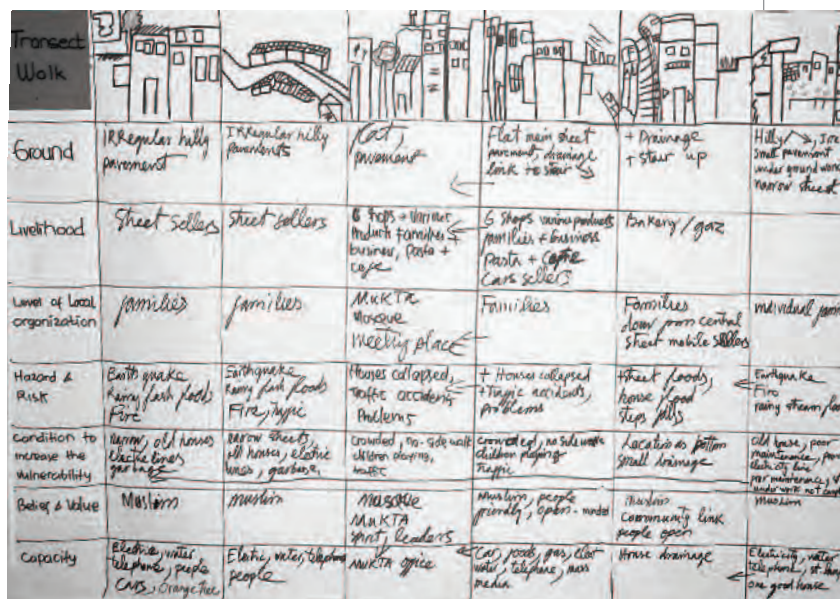 Transect
Walk
Ground
IRRegular hilly
pavement
IRRegular hilly
pavements
flat,
pavement
Flat main street
pavement, drainage
link to stair
+ Drainage
+ stair up
Hilly
small pavement
under ground work
narrow street
Livelihood
Street sellers
street sellers
6 shops + various
products families +
business, pasta +
cafe
6 Shops various products
families + business
Pasta + Cafe
Cars sellers
Bakery / gaz
Level of Local
organization
families
families
MUKTA
Mosque
Meeting place
Families
Families
down from central
street mobile sellers
individual
Hazard &
Risk
Earthquake
Rainy flash floods
Fire
Earthquake
Rainy flash floods
Fire,
Houses collapsed,
Traffic accidents
Problems
+ Houses collapsed
+ Traffic accidents,
problems
+ street floods,
house flood
steps
Earthquake
Fire
rainy stream
Condition to
increase the
vulnerability
Narrow, old houses
electric lines
garbage
narrow streets,
old houses, electric
lines, garbage,
crowded, no side walk
children playing,
traffic
crowded, no side walk
children playing
Traffic
Location as bottom
small drainage
old house, poor
maintenance,
electricity line
poor maintenance,
under work not
Belief & Value
Muslim
muslim
Mosque
MUKTA
spirit, leaders
Muslim, people
friendly, open-minded
muslim
Community link
people open
muslim
Capacity
Electric, water
telephone, people
CARS, Orange Tree
Electric, water, telephone
people
MUKTA office
Car, foods, gas, elect
water, telephone, mass
media
House drainage
Electricity, water
telephone, st.
one good house